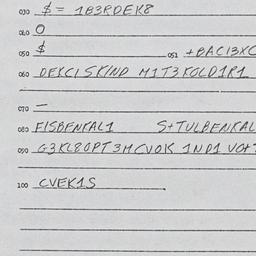 030 $ = 1B3RDEK8
040 O
050 $ 051 +BACI3XC
060 DEKCISKIND M1T3KOLD1R1
070 —
080 FISBENKAL1 S+TULBENKAL
090 G3KL8OPT3MCVOK 1ND1 VO+T
100 CVEK1S